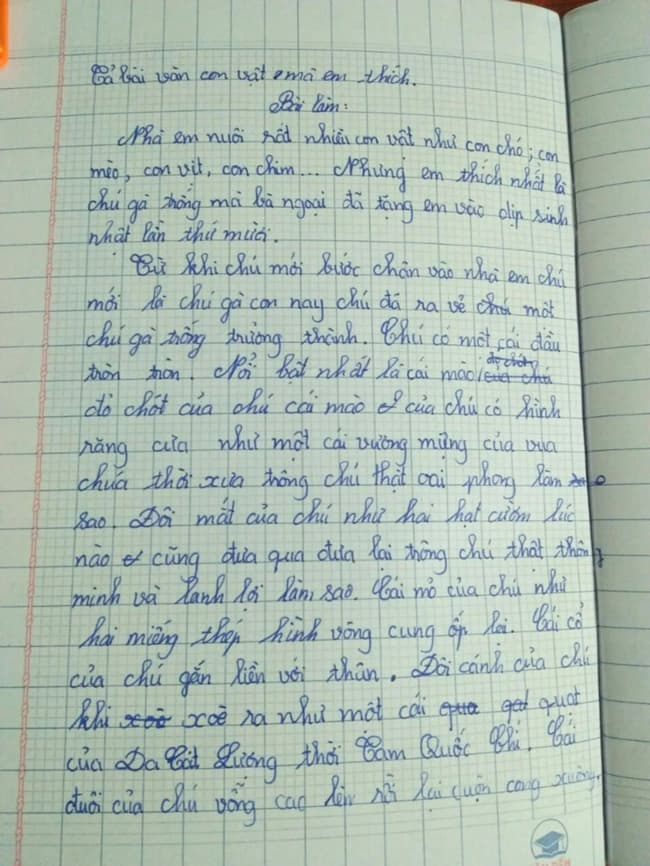 Tả bài văn con vật mà em thích.
Bài làm:
Nhà em nuôi rất nhiều con vật như con chó; con
mèo, con vịt, con chim... Nhưng em thích nhất là
chú gà trống mà bà ngoại đã tặng em vào dịp sinh
nhật lần thứ mười.
Từ khi chú mới bước chân vào nhà em chú
mới là chú gà con nay chú đã ra vẻ chú một
chú gà trống trưởng thành. Chú có một cái đầu
tròn tròn. Nổi bật nhất là cái mào đỏ chót của chú
đỏ chót của chú cái mào của chú có hình
răng cưa như một cái vương miện của vua
chúa thời xưa trông chú thật oai phong làm
sao. Đôi mắt của chú như hai hạt cườm lúc
nào cũng đưa qua đưa lại trông chú thật thông
minh và lanh lợi làm sao. Cái mỏ của chú như
hai miếng thép hình vòng cung ốp lại. Cái cổ
của chú gắn liền với thân. Đôi cánh của chú
khi xoè xoè ra như một cái qua qat quạt
của Da Cát Lượng thời Tam Quốc Chí. Cái
đuôi của chú vổng cao lên rồi lại cuộn cong xuống.